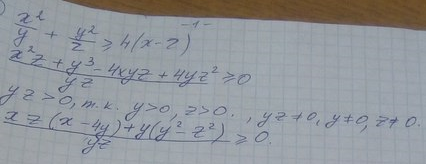 -1-
x²/y + y²/z ≥ 4(x-z)
(x²z + y³ - 4xyz + 4yz²)/yz ≥ 0
yz > 0, т.к. y > 0, z > 0. , yz ≠ 0, y ≠ 0, z ≠ 0.
(xz(x - 4y) + y(y² - z²))/yz ≥ 0.